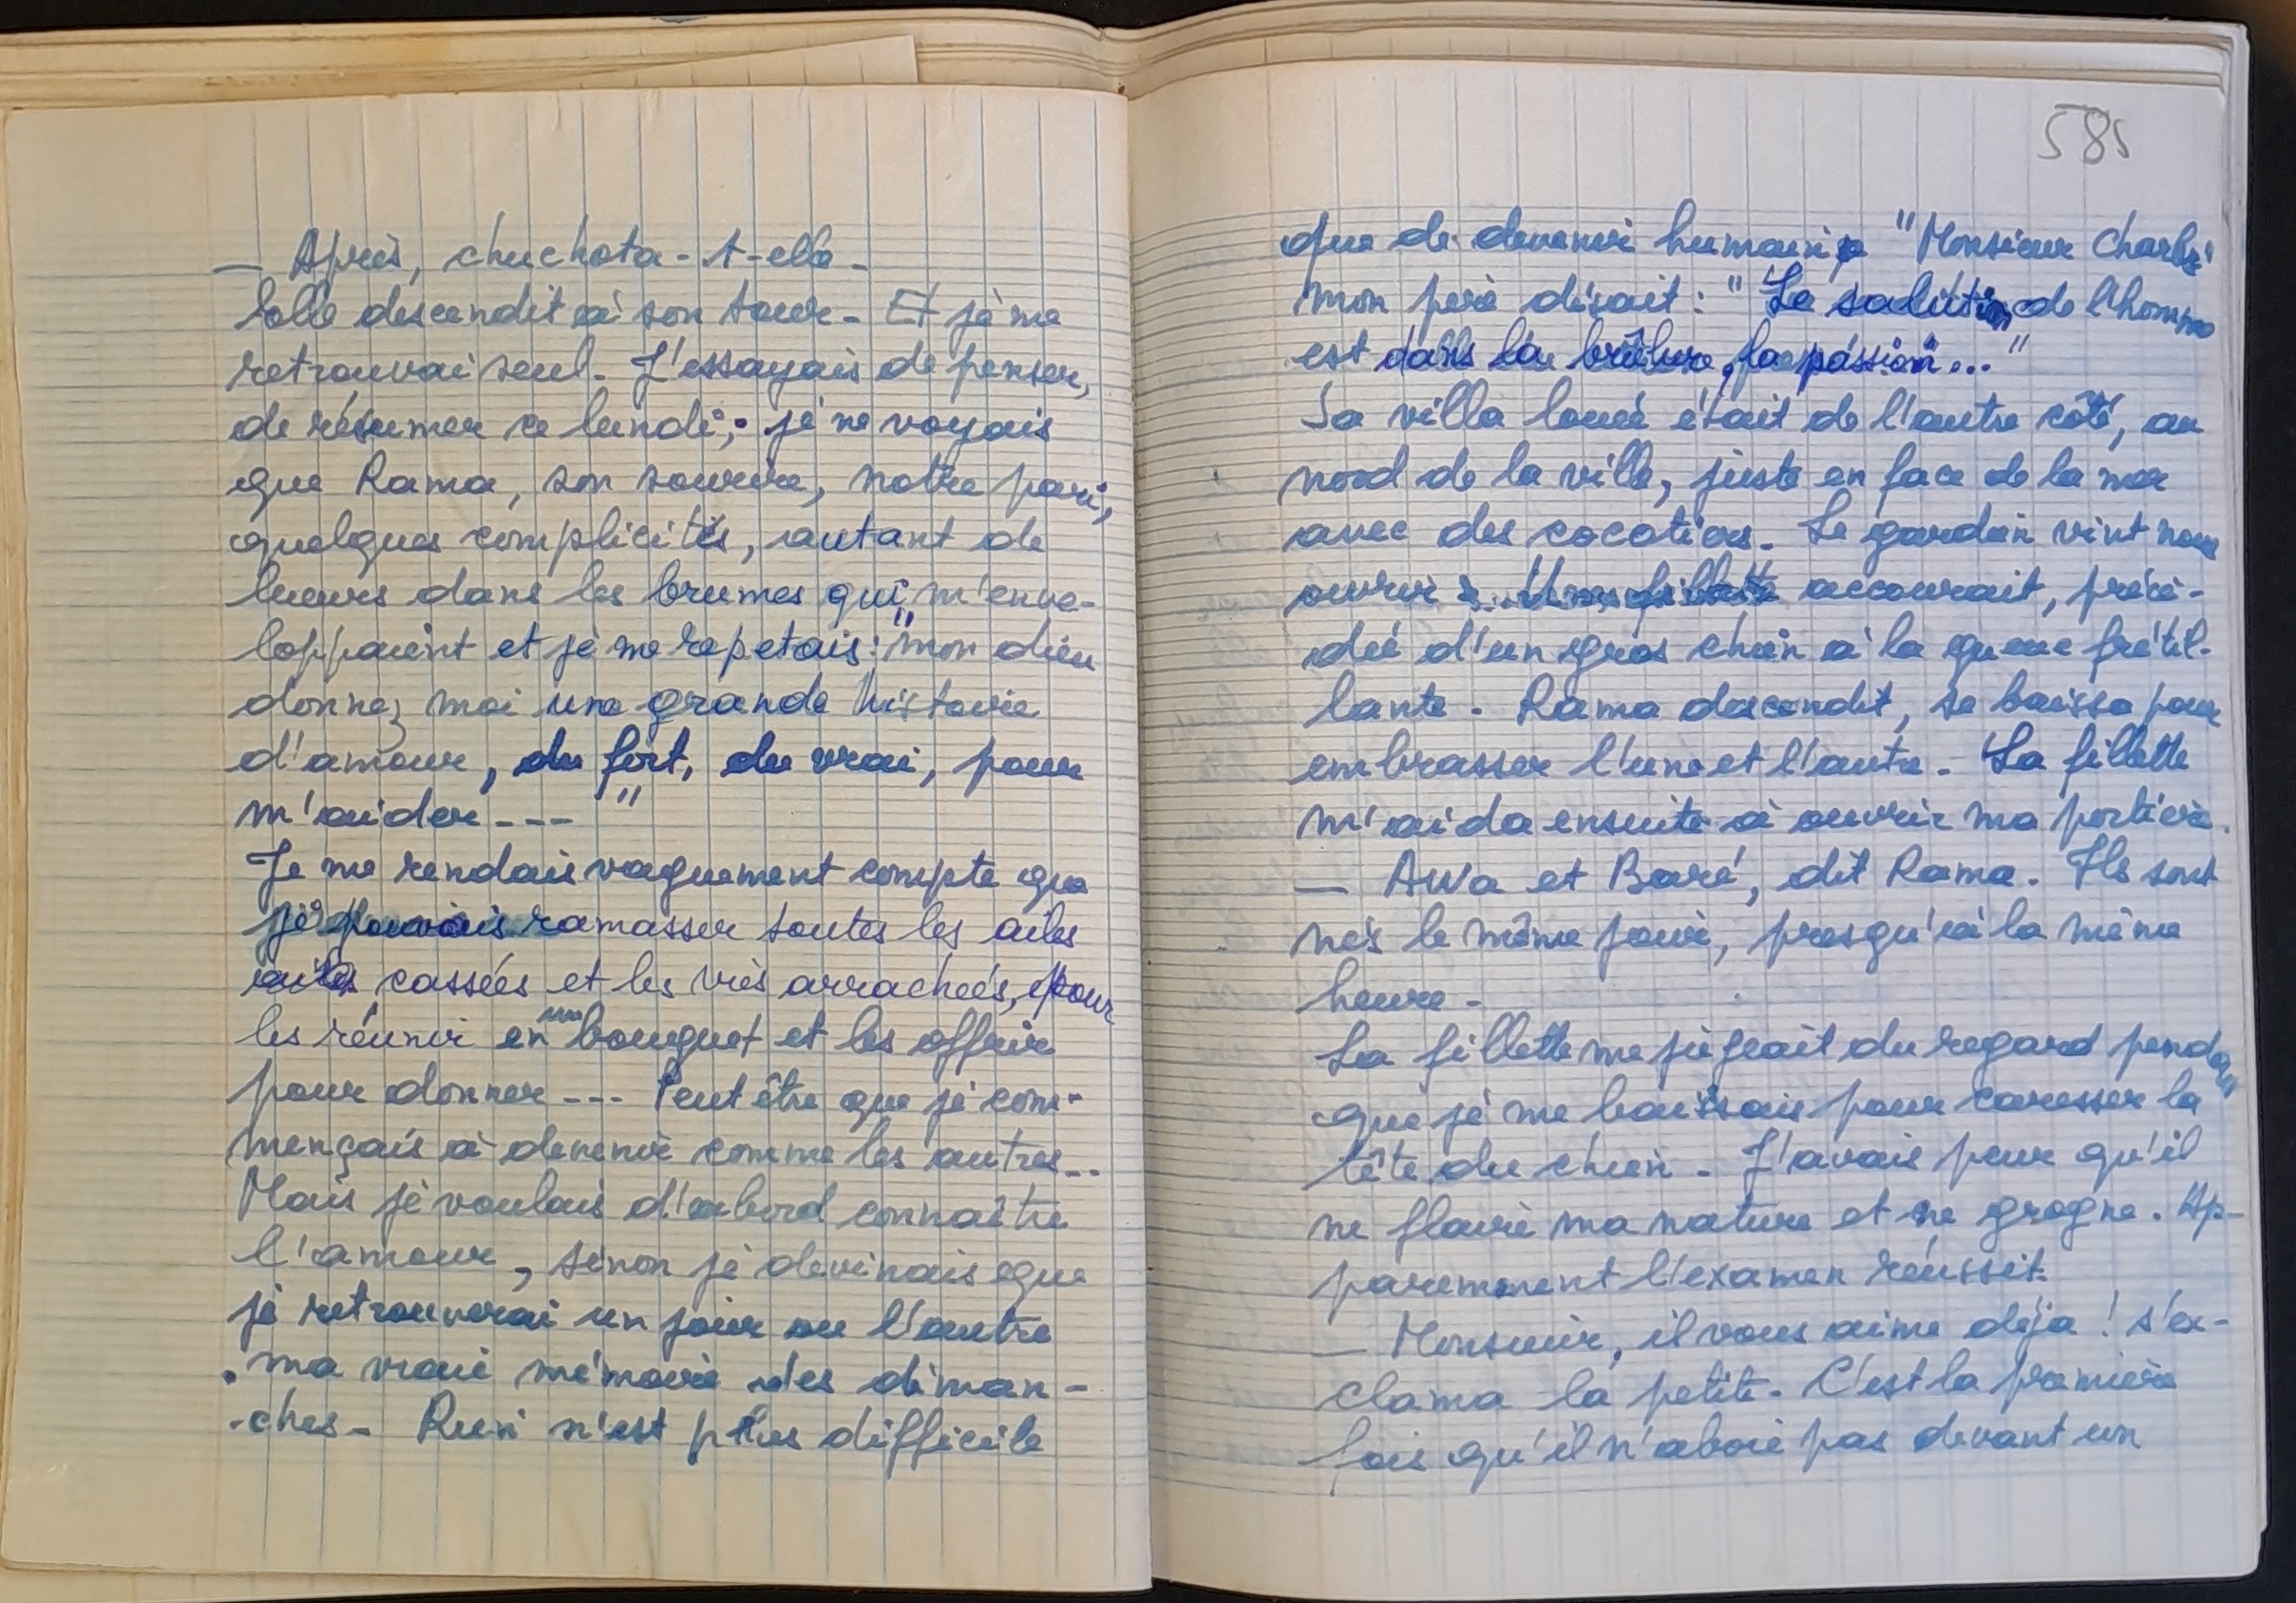 — Après, chuchota-t-elle -
Lolli descendit à son tour - Et je me
retrouvai seul. J'essayais de penser,
de résumer ce lundi; je ne voyais
que Rama, son sourire, notre pari,
quelques complicités, autant de
lueurs dans les brumes qui m'enve-
loppaient et je me repetais : "mon dieu
donnez moi une grande histoire
d'amour, du fort, du vrai, pour
m'aider --- "
Je me rendais vaguement compte que
je pouvais ramasser toutes les ailes
ailes cassées et les vies arrachées, pour
les réunir en un bouquet et les offrir
pour donner --- Peut être que je com-
mençais à devenir comme les autres --
Mais je voulais d'abord connaître
l'amour, sinon je devinais que
je retrouverai un jour ou l'autre
ma vraie mémoire des diman-
-ches - Rien n'est plus difficile
585
que de devenir humain, "Monsieur Charles"
mon père disait : " La solution de l'homme
est dans la brûlure, la passion... "
Sa villa louée était de l'autre côté, au
nord de la ville, juste en face de la mer
avec des cocotiers. Le gardien vint nous
ouvrir. Une fillette accourait, précé-
dée d'un gros chien à la queue frétil-
lante. Rama descendit, se baissa pour
embrasser l'une et l'autre. La fillette
m'aida ensuite à ouvrir ma portière.
— AWa et Baré, dit Rama. Ils sont
nés le même jour, presqu'à la même
heure -
La fillette me jugeait du regard pendant
que je me baissais pour caresser la
tête du chien - J'avais peur qu'il
ne flaire ma nature et ne grogne. Ap-
paremment l'examen réussit.
— Monsieur, il vous aime déja ! s'ex-
clama la petite. C'est la première
fois qu'il n'aboie pas devant un